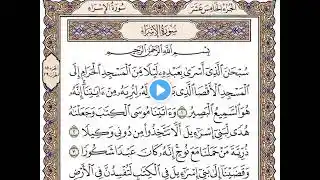 الجزء الخامس عشر
سورة الإسراء
سورة الإسراء
بسم الله الرحمن الرحيم
سُبْحَٰنَ ٱلَّذِىٓ أَسْرَىٰ بِعَبْدِهِۦ لَيْلًا مِّنَ ٱلْمَسْجِدِ ٱلْحَرَامِ إِلَى
ٱلْمَسْجِدِ ٱلْأَقْصَا ٱلَّذِى لِنُرِيَهُۥ مِنْ ءَايَٰتِنَآ إِنَّهُۥ
هُوَ ٱلسَّمِيعُ ٱلْبَصِيرُ ١ وَءَاتَيْنَا مُوسَى ٱلْكِتَٰبَ وَجَعَلْنَٰهُ
هُدًى لِّبَنِىٓ إِسْرَٰٓءِيلَ أَلَّا تَتَّخِذُوا۟ مِن دُونِى وَكِيلًا ٢
ذُرِّيَّةَ مَنْ حَمَلْنَا مَعَ نُوحٍ إِنَّهُۥ كَانَ عَبْدًا شَكُورًا ٣
وَقَضَيْنَآ إِلَىٰ بَنِىٓ إِسْرَٰٓءِيلَ فِى ٱلْكِتَٰبِ لَتُفْسِدُنَّ فِى ٱلْأَرْضِ